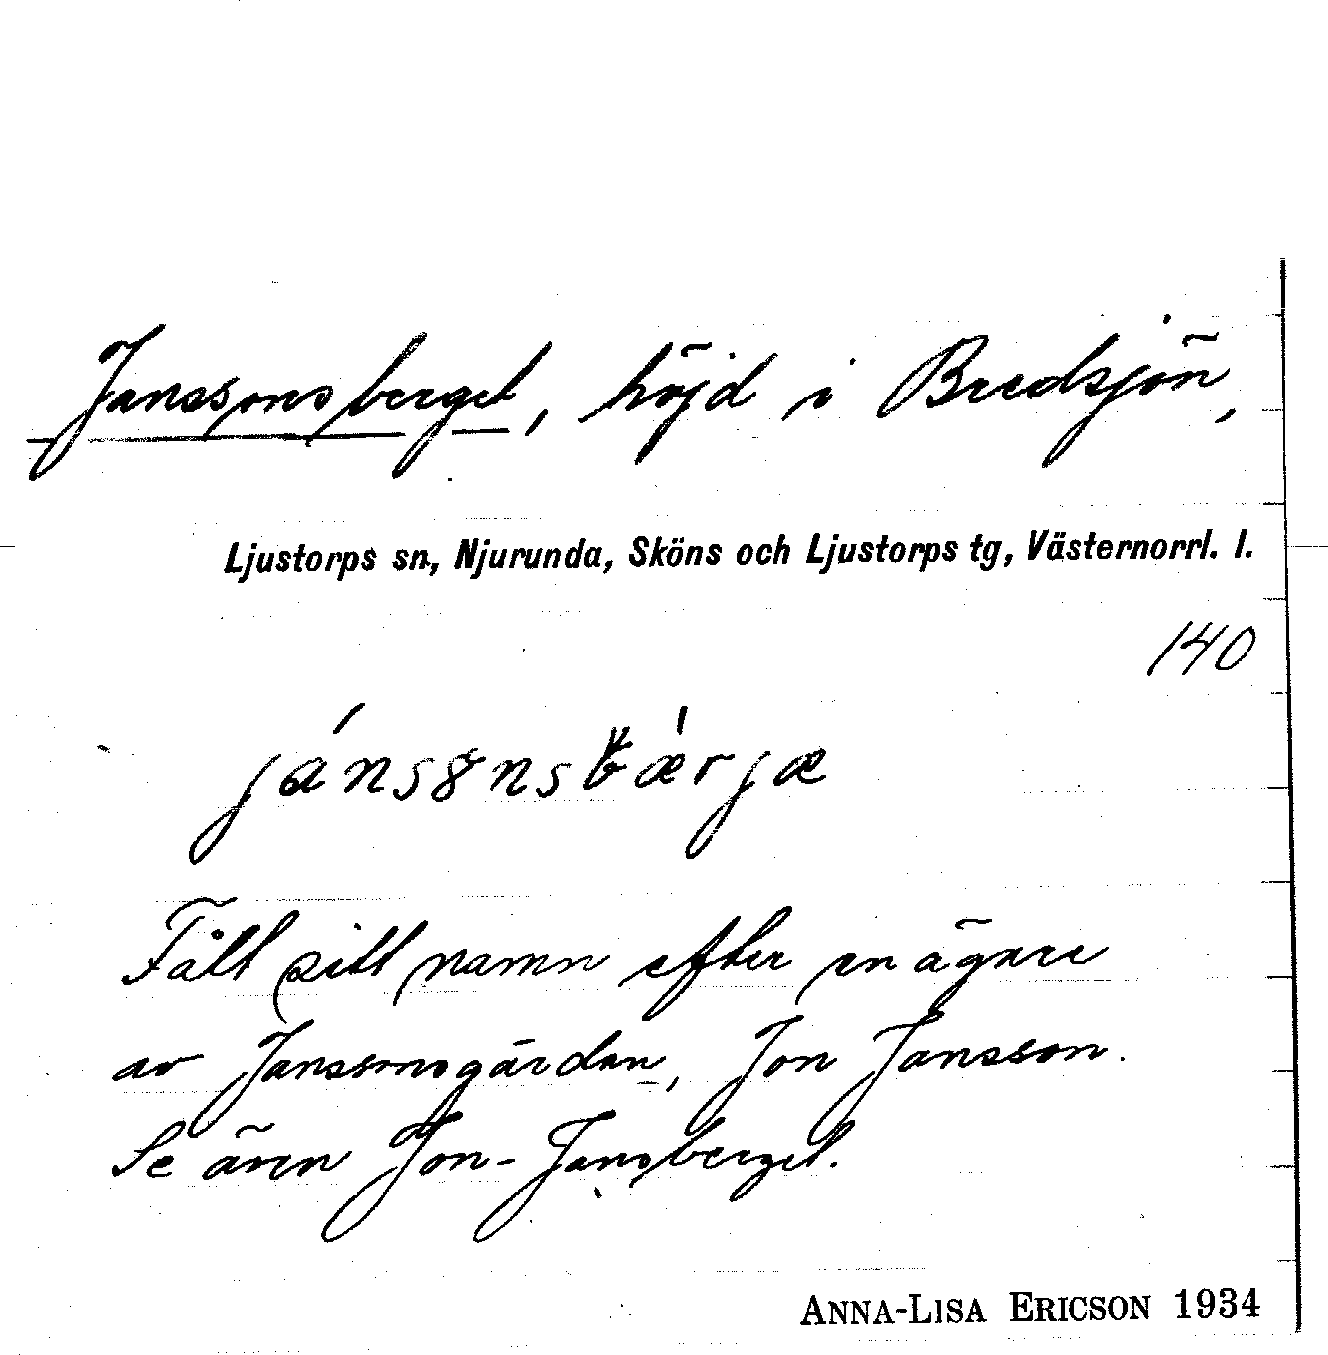 Janssonsberget, höjd i Bredsjön,
Ljustorps sn, Njurunda, Sköns och Ljustorps tg, Västernorrl. l.
140
Fått sitt namn efter en ägare
av Janssonsgården, Jon Jansson.
Se även Jon-Jansberget.
ANNA-LISA ERICSON 1934